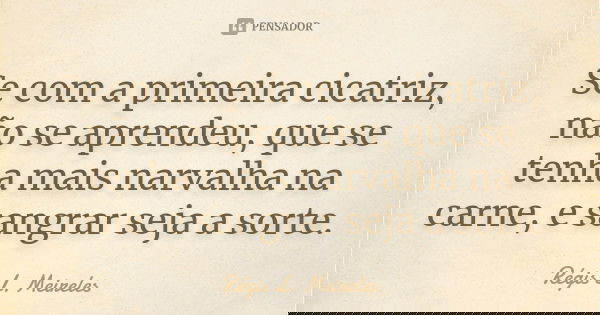 PENSADOR
Se com a primeira cicatriz,
não se aprendeu, que se
tenha mais narvalha na
carne, e sangrar seja a sorte.
Régis L. Meireles